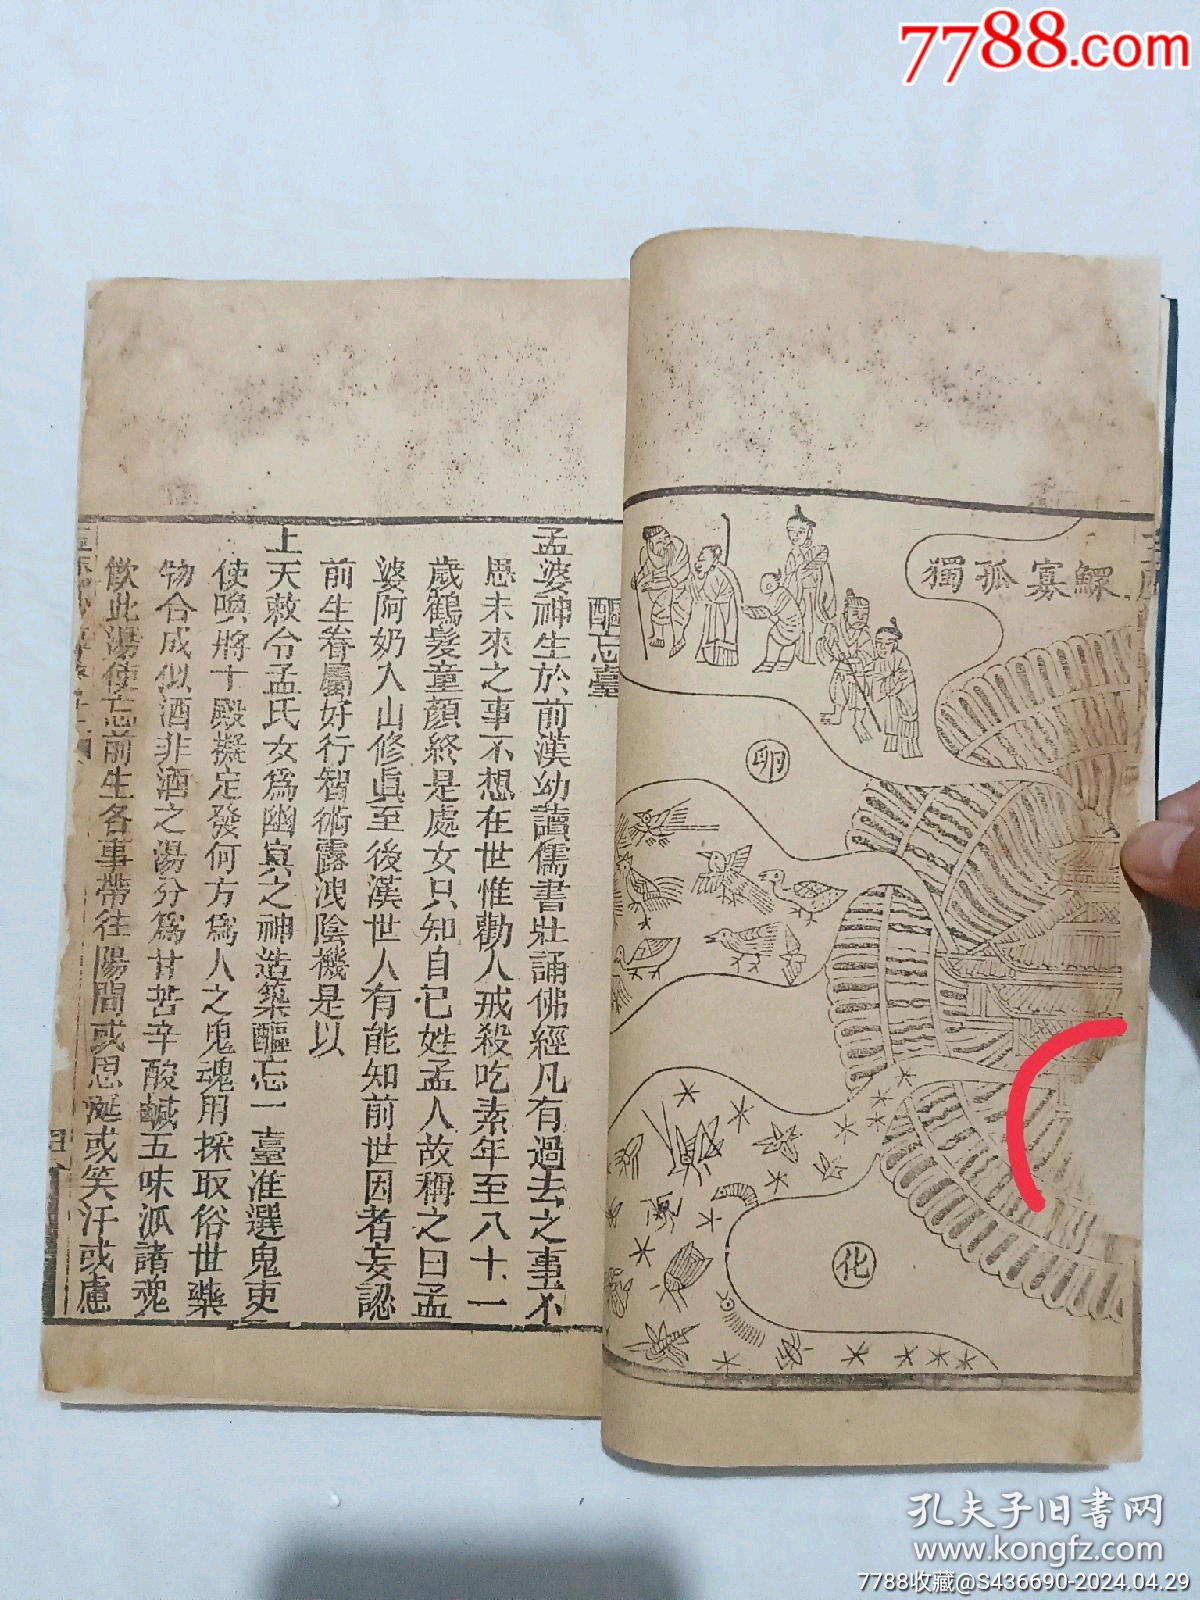 7788.com
鰥寡孤獨
卵
化
醧忘臺
孟婆神生於前漢幼讀儒書壯誦佛經凡有過去之事不
思未來之事不想在世惟勸人戒殺吃素年至八十一
歲鶴髮童顏終是處女只知自己姓孟人故稱之曰孟
婆阿奶入山修眞至後漢世人有能知前世因者妄認
前生眷屬好行智術露洩陰機是以
上天敕令孟氏女爲幽冥之神造築醧忘一臺准選鬼吏
使喚將十殿擬定發何方爲人之鬼魂用採取俗世藥
物合成似酒非酒之湯分爲甘苦辛酸鹹五味派諸魂
飲此湯使忘前生各事帶往陽間或思涎或笑汗或慮
孔夫子旧书网
www.kongfz.com
7788收藏@S436690-2024.04.29